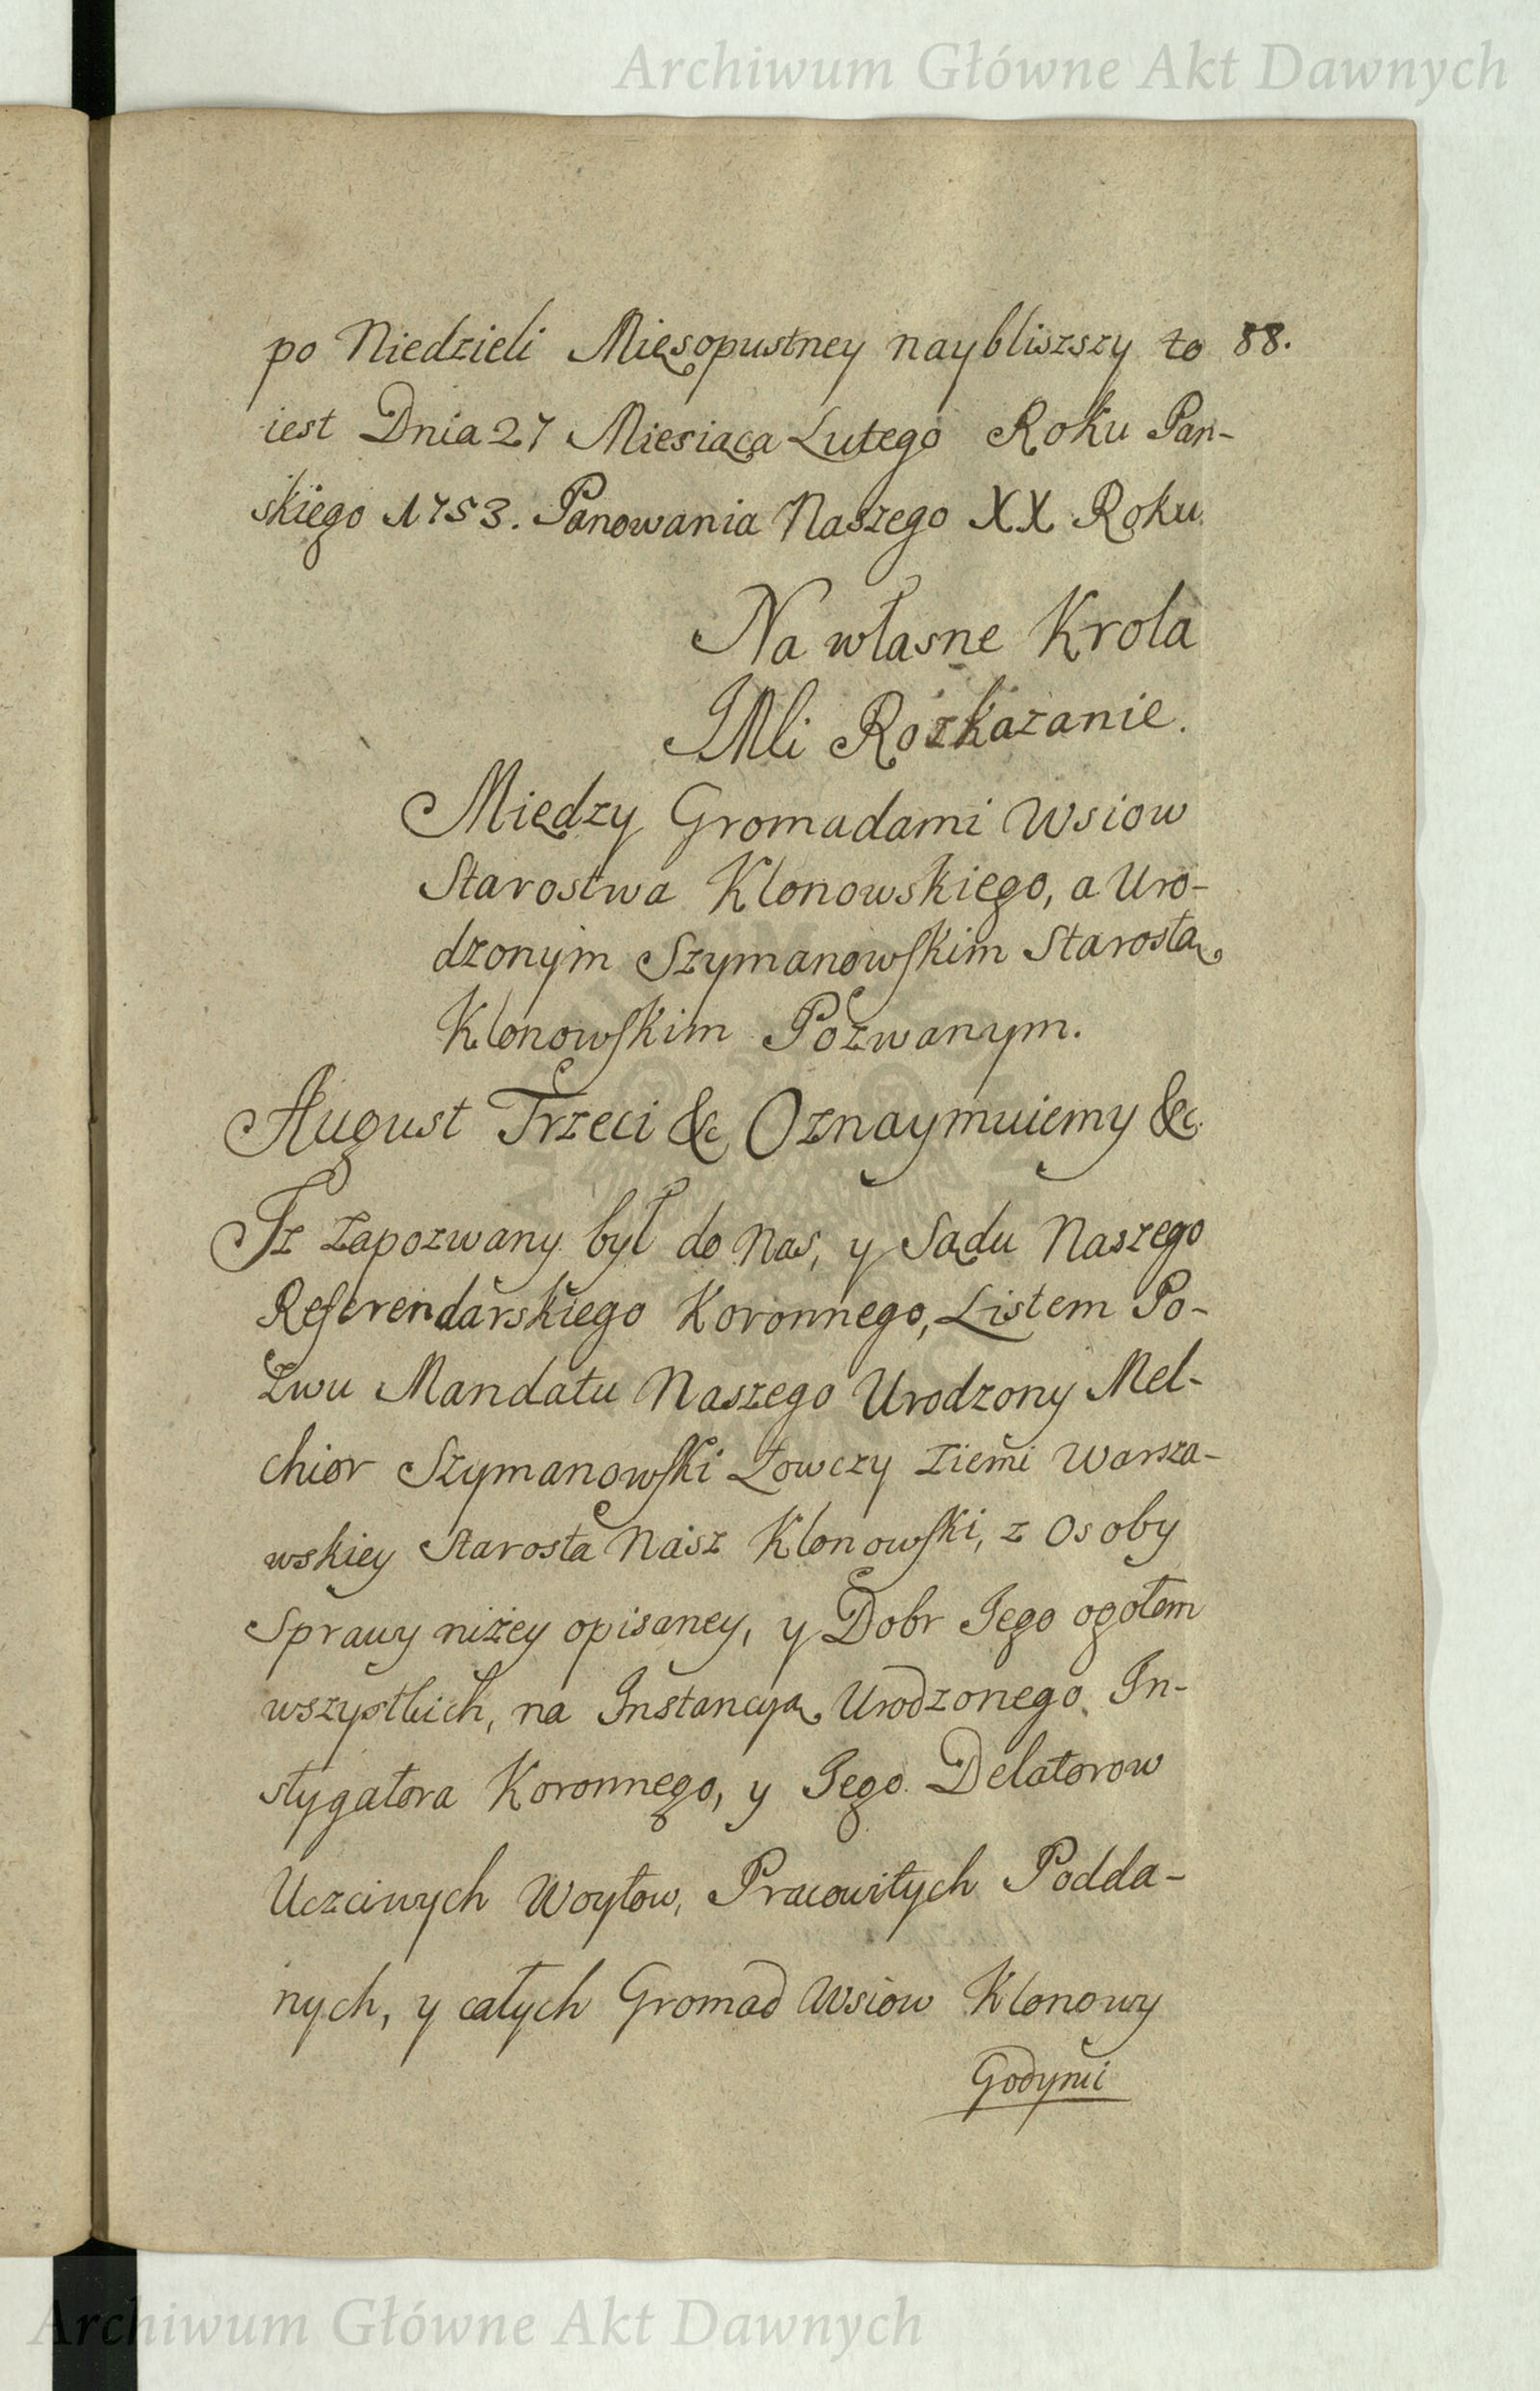 Archiwum Główne Akt Dawnych
po Niedzieli Mięsopustney naybliszszy to 88.
iest Dnia 27 Miesiąca Lutego Roku Pan-
skiego 1753. Panowania Naszego XX Roku.
Na własne Krola
JMli Rozkazanie.
Między Gromadami Wsiow
Starostwa Klonowskiego, a Uro-
dzonym Szymanowskim Starostą
Klonowskim Pozwanym.
August Trzeci &c Oznaymuiemy &c.
Iż Zapozwany był do Nas, y Sądu Naszego
Referendarskiego Koronnego, Listem Po-
zwu Mandatu Naszego Urodzony Mel-
chior Szymanowski Łowczy Ziemi Warsza-
wskiey Starosta Nasz Klonowski, z Osoby
Sprawy niżey opisaney, y Dobr Jego ogołem
wszystkich, na Instancyą Urodzonego In-
stygatora Koronnego, y Jego Delatorow
Uczciwych Woytow, Pracowitych Podda-
nych, y całych Gromad Wsiow Klonowy
Godyni
Archiwum Główne Akt Dawnych